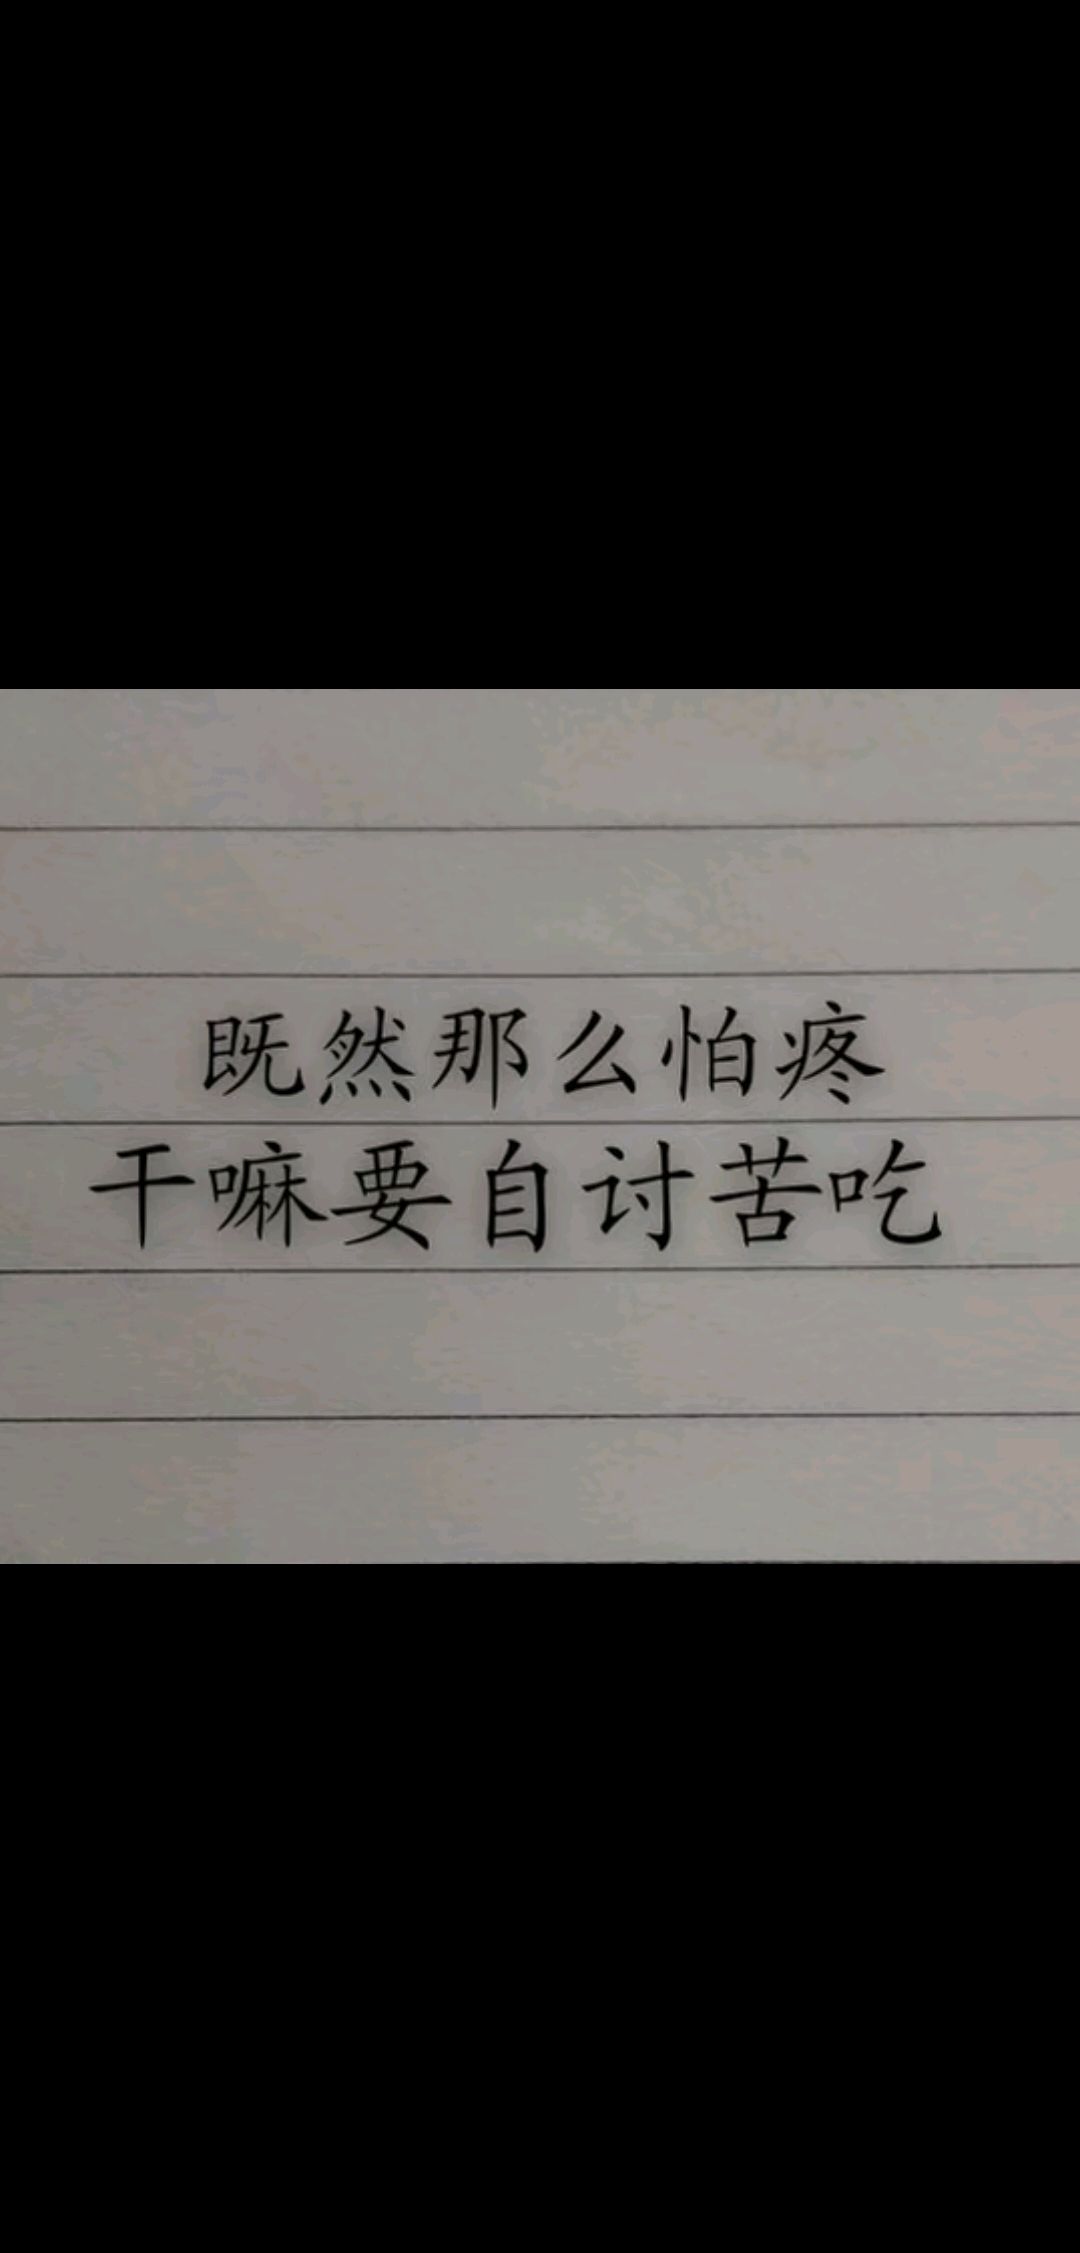 既然那么怕疼
干嘛要自讨苦吃